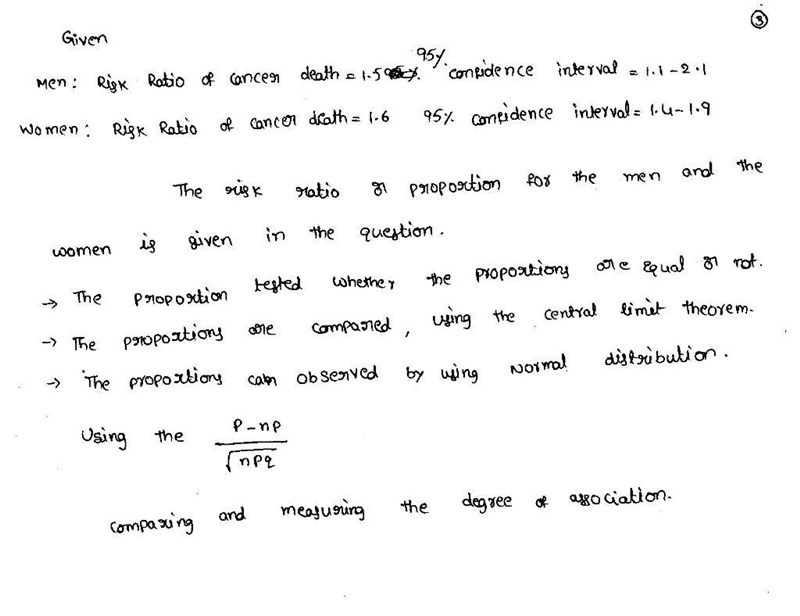 3
Given
Men: Risk Ratio of cancer death = 1.5 95% confidence interval = 1.1 - 2.1
Women: Risk Ratio of cancer death = 1.6 95% confidence interval = 1.4 - 1.9
The risk ratio or proportion for the men and the
women is given in the question.
→ The proportion tested whether the proportions are equal or not.
→ The proportions are compared, using the central limit theorem.
→ The proportions can observed by using Normal distribution.
Using the P - np / √npq
comparing and measuring the degree of association.